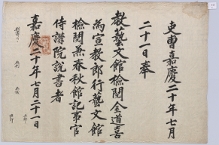 吏曹嘉慶二十年七月
二十一日奉
教藝文館檢閱金道喜
為宣教郎行藝文館
檢閱兼春秋館記事官
侍講院說書者
嘉慶二十年七月二十一日